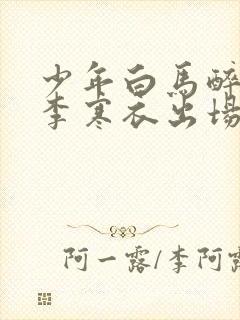 少年白馬醉
李寒衣出場
阿一露/李阿露